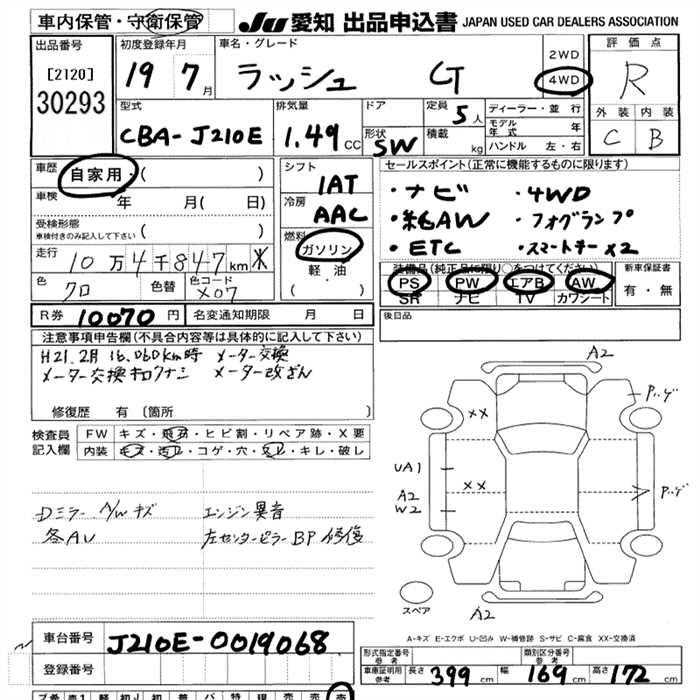 車内保管・守衛保管
JU 愛知 出品申込書 JAPAN USED CAR DEALERS ASSOCIATION
出品番号
[2120]
30293
初度登録年月
19 7月
車名・グレード
ラッシュ G
2WD
4WD
評価点
R
外装 内装
C B
型式
CBA-J210E
排気量
1.49 CC
ドア
形状
SW
定員
5人
積載
kg
ディーラー・並行
モデル年式 年
ハンドル 左・右
車歴
自家用・( )
車検 年 月( 日)
受検形態
車検付きのみ記入して下さい ( )
走行
10万4千847km ※
色
クロ
色替
色コード
X07
シフト
1AT
冷房
AAC
燃料
ガソリン
軽・油
( )
セールスポイント(正常に機能するものに限ります)
・ナビ ・4WD
・純AW ・フォグランプ
・ETC ・スマートキーx2
装備品(純正品に限り○をつけてください)
PS PW エアB AW
SR ナビ TV カワシート
新車保証書
有・無
R券 10070円 名変通知期限 月 日
後日品
注意事項申告欄(不具合内容等は具体的に記入して下さい)
H21.2月 16,060km時 メーター交換
メーター交換キロクナシ メーター改ざん
修復歴 有(箇所 )
検査員記入欄
FW キズ・飛石・ヒビ割・リペア跡・X要
内装 キズ・汚レ・コゲ・穴・スレ・キレ・破し
Dミラー A/Wキズ エンジン異音
各AU 左センターピラーBP修復
A2
XX
パハゲ
UA1
XX
A2
W2
パハゲ
スペア
A2
A-キズ E-エクボ U-凹み W-補修跡 S-サビ C-腐食 XX-交換済
車台番号 J210E-0019068
登録番号
形式指定番号
参考
類別区分番号
参考
車庫証明用
参考
長さ 399cm 幅 169cm 高さ 172cm